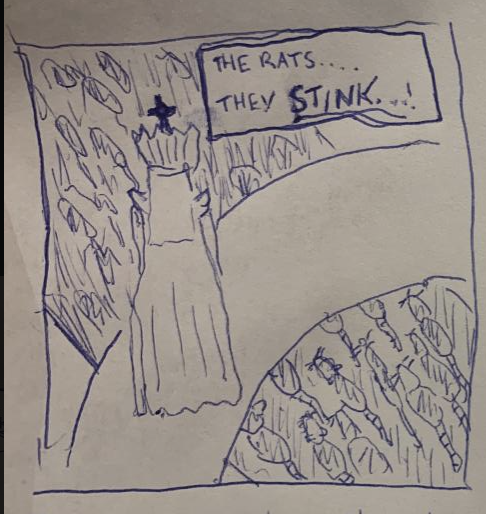 THE RATS....
THEY STINK...!